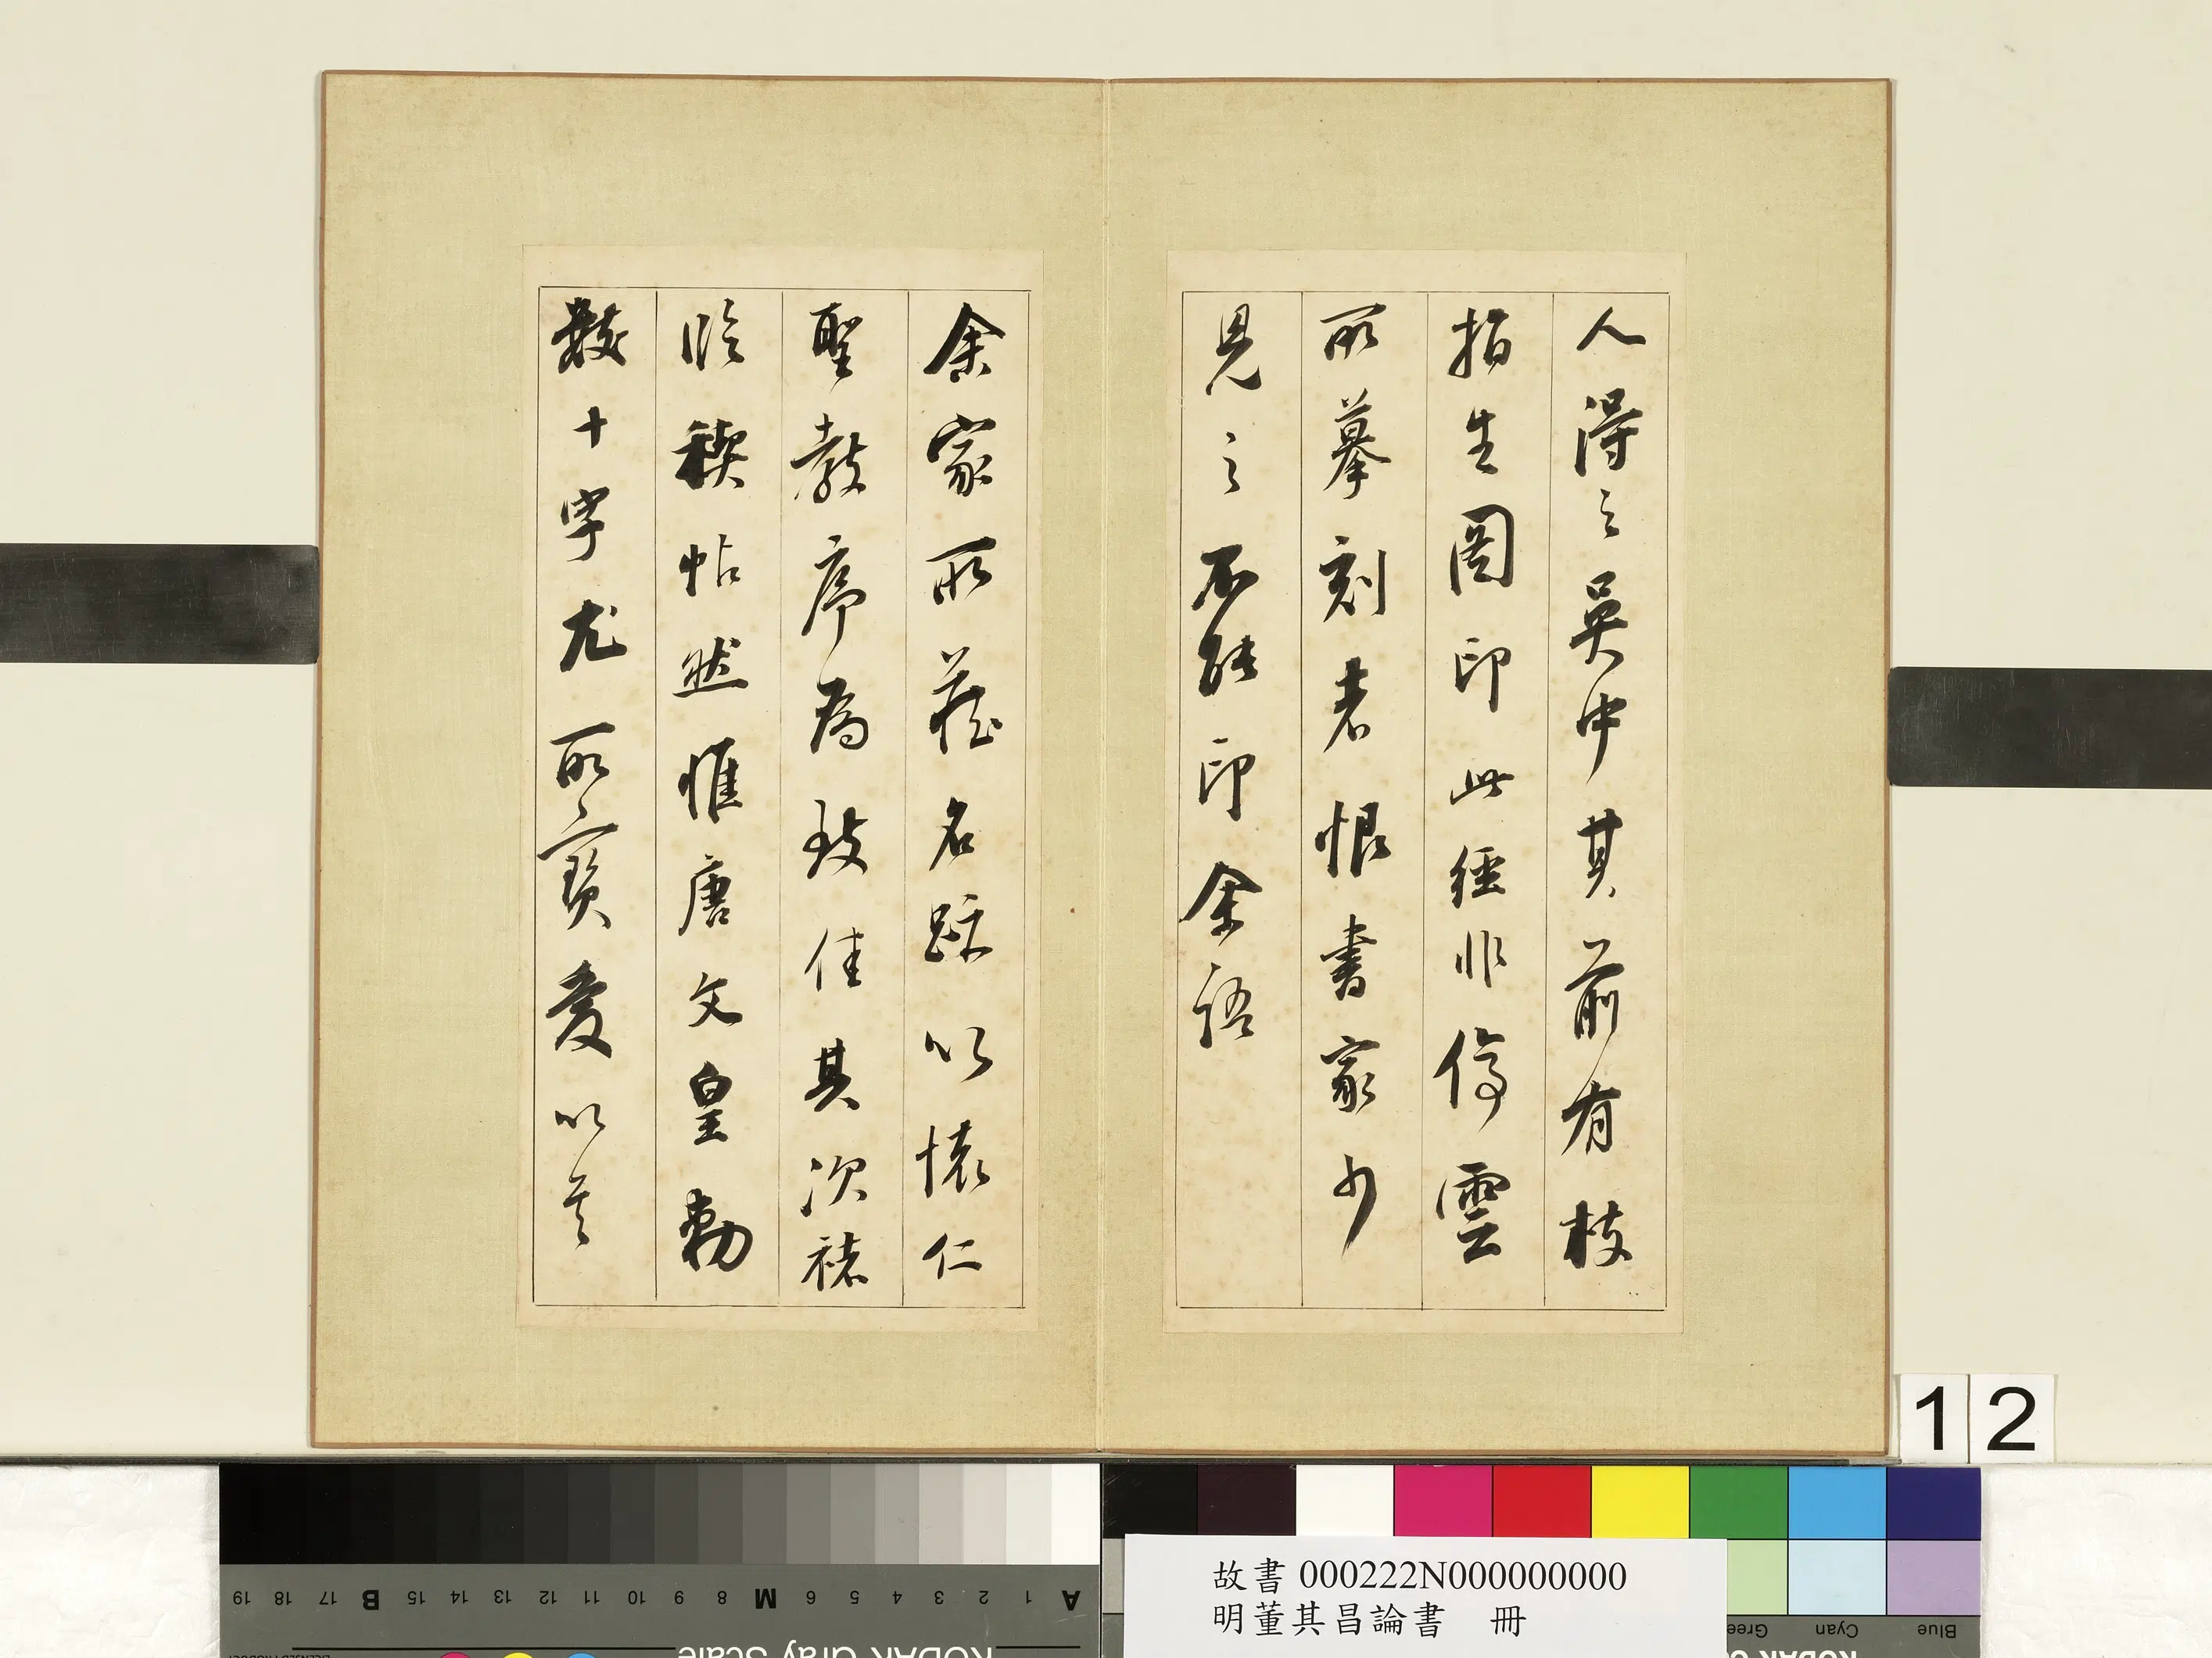 人得之吳中其前有枝
指生圖印此經非停雲
所摹刻者恨書家少
見之不能印余語
余家所藏名跡以懷仁
聖教序為致佳其次褚
臨禊帖然惟唐文皇勅
數十字尤所寶愛以其
12
故書 000222N000000000
明董其昌論書 冊
A 1 2 3 4 5 6 M 8 9 10 11 12 13 14 15 B 17 18 19
KODAK Gray Scale
Blue Cyan Gree